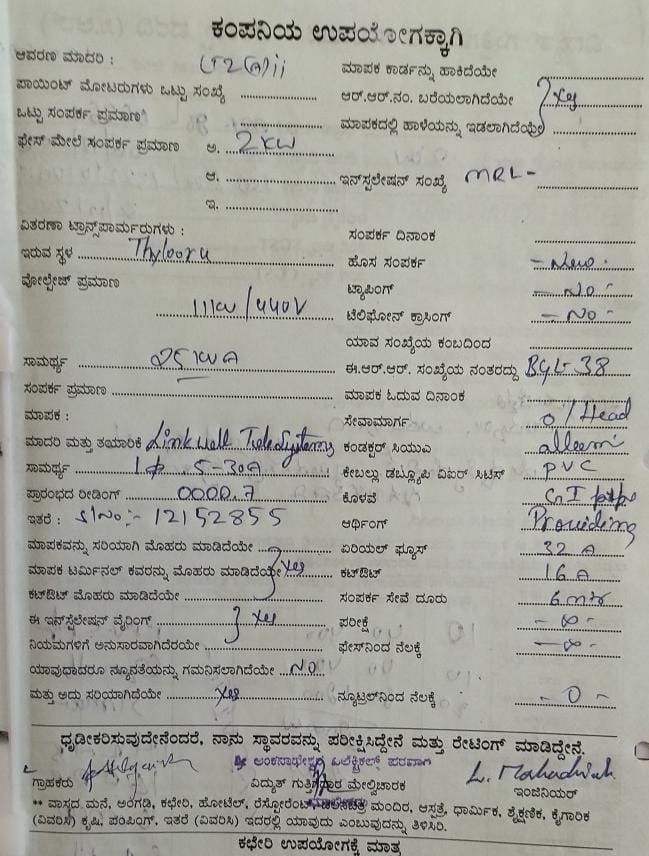 ಕಂಪನಿಯ ಉಪಯೋಗಕ್ಕಾಗಿ
ಆವರಣ ಮಾದರಿ : LT2(a)ii ಮಾಪಕ ಕಾರ್ಡನ್ನು ಹಾಕಿದೆಯೇ
ಪಾಯಿಂಟ್ ಮೋಟರುಗಳು ಒಟ್ಟು ಸಂಖ್ಯೆ ಆರ್.ಆರ್.ನಂ. ಬರೆಯಲಾಗಿದೆಯೇ Yes
ಒಟ್ಟು ಸಂಪರ್ಕ ಪ್ರಮಾಣ ಮಾಪಕದಲ್ಲಿ ಹಾಳೆಯನ್ನು ಇಡಲಾಗಿದೆಯೇ
ಫೇಸ್ ಮೇಲೆ ಸಂಪರ್ಕ ಪ್ರಮಾಣ ಅ. 2KW
ಆ. ಇನ್‌ಸ್ಟಲೇಷನ್ ಸಂಖ್ಯೆ MRL-
ಇ.
ವಿತರಣಾ ಟ್ರಾನ್ಸ್‌ಪಾರ್ಮರುಗಳು : ಸಂಪರ್ಕ ದಿನಾಂಕ
ಇರುವ ಸ್ಥಳ Thylooru ಹೊಸ ಸಂಪರ್ಕ - New -
ವೋಲ್ಟೇಜ್ ಪ್ರಮಾಣ ಟ್ಯಾಪಿಂಗ್ - No -
11KV/440V ಟೆಲಿಫೋನ್ ಕ್ರಾಸಿಂಗ್ - No -
ಯಾವ ಸಂಖ್ಯೆಯ ಕಂಬದಿಂದ
ಸಾಮರ್ಥ್ಯ 25 KVA ಈ.ಆರ್.ಆರ್. ಸಂಖ್ಯೆಯ ನಂತರದ್ದು BGL-38
ಸಂಪರ್ಕ ಪ್ರಮಾಣ ಮಾಪಕ ಓದುವ ದಿನಾಂಕ
ಮಾಪಕ : ಸೇವಾಮಾರ್ಗ O/Head
ಮಾದರಿ ಮತ್ತು ತಯಾರಿಕೆ Linkwell TeleSystems ಕಂಡಕ್ಟರ್ ಸಿಯುಎ alleemi
ಸಾಮರ್ಥ್ಯ 1ϕ 5-30A ಕೇಬಲ್ಲು ಡಬ್ಲ್ಯೂಪಿ ವಿಐಆರ್ ಸಿಟಿಸ್ PVC
ಪ್ರಾರಂಭದ ರೀಡಿಂಗ್ 0000.7 ಕೊಳವೆ GI pipe
ಇತರೆ : SlNo:- 12152855 ಆರ್ಥಿಂಗ್ Providing
ಮಾಪಕವನ್ನು ಸರಿಯಾಗಿ ಮೊಹರು ಮಾಡಿದೆಯೇ ಏರಿಯಲ್ ಫ್ಯೂಸ್ 32 A
ಮಾಪಕ ಟರ್ಮಿನಲ್ ಕವರನ್ನು ಮೊಹರು ಮಾಡಿದೆಯೇ Yes ಕಟ್‌ಔಟ್ 16 A
ಕಟ್‌ಔಟ್ ಮೊಹರು ಮಾಡಿದೆಯೇ ಸಂಪರ್ಕ ಸೇವೆ ದೂರು 6 mtr
ಈ ಇನ್‌ಸ್ಟಲೇಷನ್ ವೈರಿಂಗ್ Yes ಪರೀಕ್ಷೆ - ∞ -
ನಿಯಮಗಳಿಗೆ ಅನುಸಾರವಾಗಿದೆರಯೇ ಫೇಸ್‌ನಿಂದ ನೆಲಕ್ಕೆ - ∞ -
ಯಾವುದಾದರೂ ನ್ಯೂನತೆಯನ್ನು ಗಮನಿಸಲಾಗಿದೆಯೇ No
ಮತ್ತು ಅದು ಸರಿಯಾಗಿದೆಯೇ Yes ನ್ಯೂಟ್ರಲ್‌ನಿಂದ ನೆಲಕ್ಕೆ - 0 -
ಧೃಡೀಕರಿಸುವುದೇನೆಂದರೆ, ನಾನು ಸ್ಥಾವರವನ್ನು ಪರೀಕ್ಷಿಸಿದ್ದೇನೆ ಮತ್ತು ರೇಟಿಂಗ್ ಮಾಡಿದ್ದೇನೆ.
ಶ್ರೀ ಅಂಕನಾಥೇಶ್ವರ ಎಲೆಕ್ಟ್ರಿಕಲ್ ಪರವಾಗಿ
ಗ್ರಾಹಕರು ವಿದ್ಯುತ್ ಗುತ್ತಿಗೆದಾರ ಮೇಲ್ವಿಚಾರಕ ಇಂಜಿನಿಯರ್
** ವಾಸ್ತವ ಮನೆ, ಅಂಗಡಿ, ಕಛೇರಿ, ಹೋಟೆಲ್, ರೆಸ್ಟೋರೆಂಟ್, ಮಂದಿರ, ಆಸ್ಪತ್ರೆ, ಧಾರ್ಮಿಕ, ಶೈಕ್ಷಣಿಕ, ಕೈಗಾರಿಕ
(ವಿವರಿಸಿ) ಕೃಷಿ, ಪಂಪಿಂಗ್, ಇತರೆ (ವಿವರಿಸಿ) ಇದರಲ್ಲಿ ಯಾವುದು ಎಂಬುವುದನ್ನು ತಿಳಿಸಿರಿ.
ಕಛೇರಿ ಉಪಯೋಗಕ್ಕೆ ಮಾತ್ರ